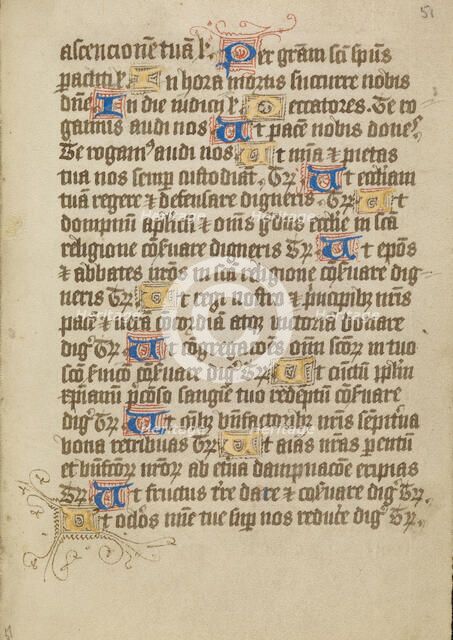 51
ascencionē tuā lꝰ. Per gram sc̄i sp̄us
paccliti lꝰ. In hora mortis succurre nobis
dn̄e In die iudicii lꝰ. Peccatores. Te ro
gamus audi nos Ut pacē nobis dones.
Te rogamꝰ audi nos Ut mia ⁊ pietas
tua nos semp custodiat. Tꝝ Ut eccliam
tuā regere ⁊ defensare digneris. Tꝝ Ut
dompnū aplicū ⁊ om̄s gdus ecclie in scā
religione cōseruare digneris Tꝝ Ut epōs
⁊ abbates nr̄os in scā religione cōseruare dig
neris Tꝝ Ut regi nostro ⁊ principibꝫ nr̄is
pacē ⁊ uerā cōcordiā atqꝫ uictoriā donare
digꝰ Tꝝ Ut cōgregacōēs om̄ scōꝝ in tuo
scō cōseruare digꝰ Tꝝ Ut cunctū pplm
xp̄ianū p̄cioso sanguīe tuo redeptū cōseruare
digꝰ Tꝝ Ut omībꝫ bn̄factoribꝫ nr̄is sempit̄na
bona retribuas Tꝝ Ut aīas nr̄as ꝑentū
et bn̄fcōꝝ nr̄oꝝ ab et̄na dampnacōe eripias
Tꝝ Ut fructus t̄re dare ⁊ cōseruare digꝰ Tꝝ.
Ut oclōs mīe tue sup nos reducē digꝰ Tꝝ.
51
Heritage
Heritage
Heritage
Heritage
Heritage